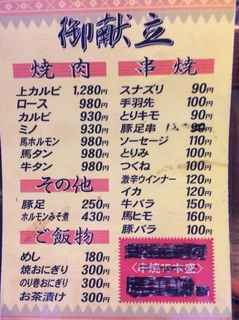 御献立
焼肉
上カルビ 1,280円
ロース 980円
カルビ 930円
ミノ 930円
馬ホルモン 980円
馬タン 980円
牛タン 980円
その他
豚足 250円
ホルモンみそ煮 430円
ご飯物
めし 180円
焼おにぎり 300円
のり巻おにぎり 300円
お茶漬け 300円
串焼
スナズリ 90円
手羽先 100円
とりキモ 90円
豚足串
ソーセージ 110円
とりみ 100円
つくね 100円
激辛ウインナー 120円
イカ 120円
牛バラ 150円
馬ヒモ 160円
豚バラ 100円
串焼10本盛